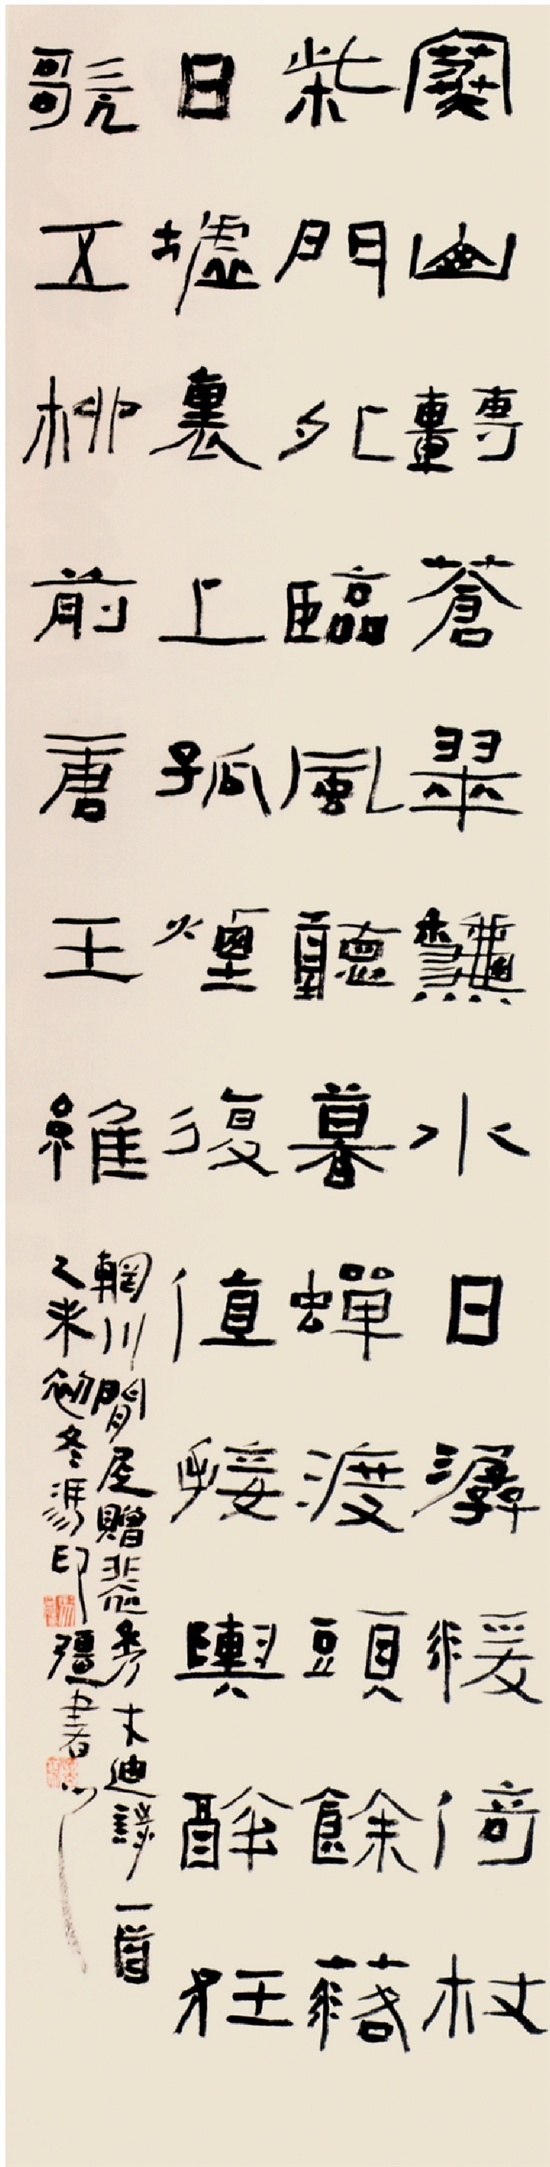 寒山轉蒼翠龝水日潺湲倚杖
柴門外臨風聽暮蟬渡頭餘落
日墟裏上孤煙復值接輿醉狂
歌五柳前唐王維
輞川閒居贈裴秀才迪詩一首
乙未初冬馮印彊書